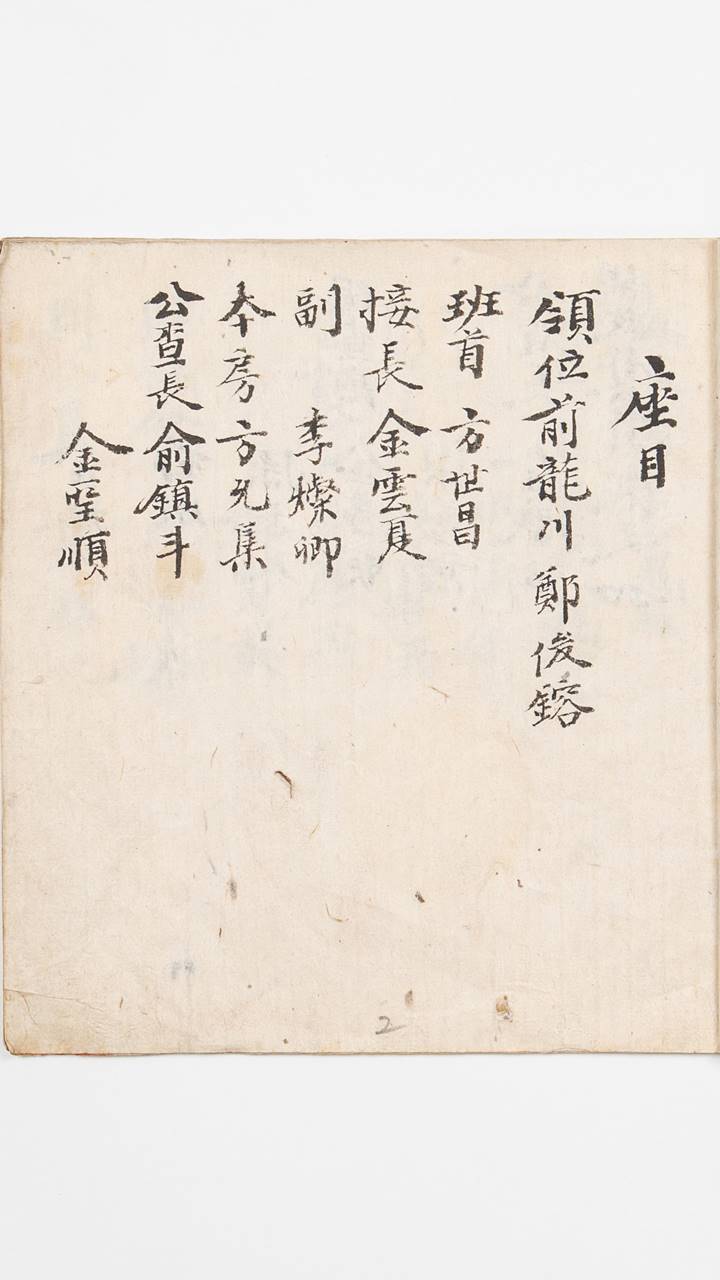 座目
領位前龍川鄭俊鎔
班首 方世昌
接長金雲夏
副 李燦卿
本房方允集
公查長俞鎮斗
金聖順
2